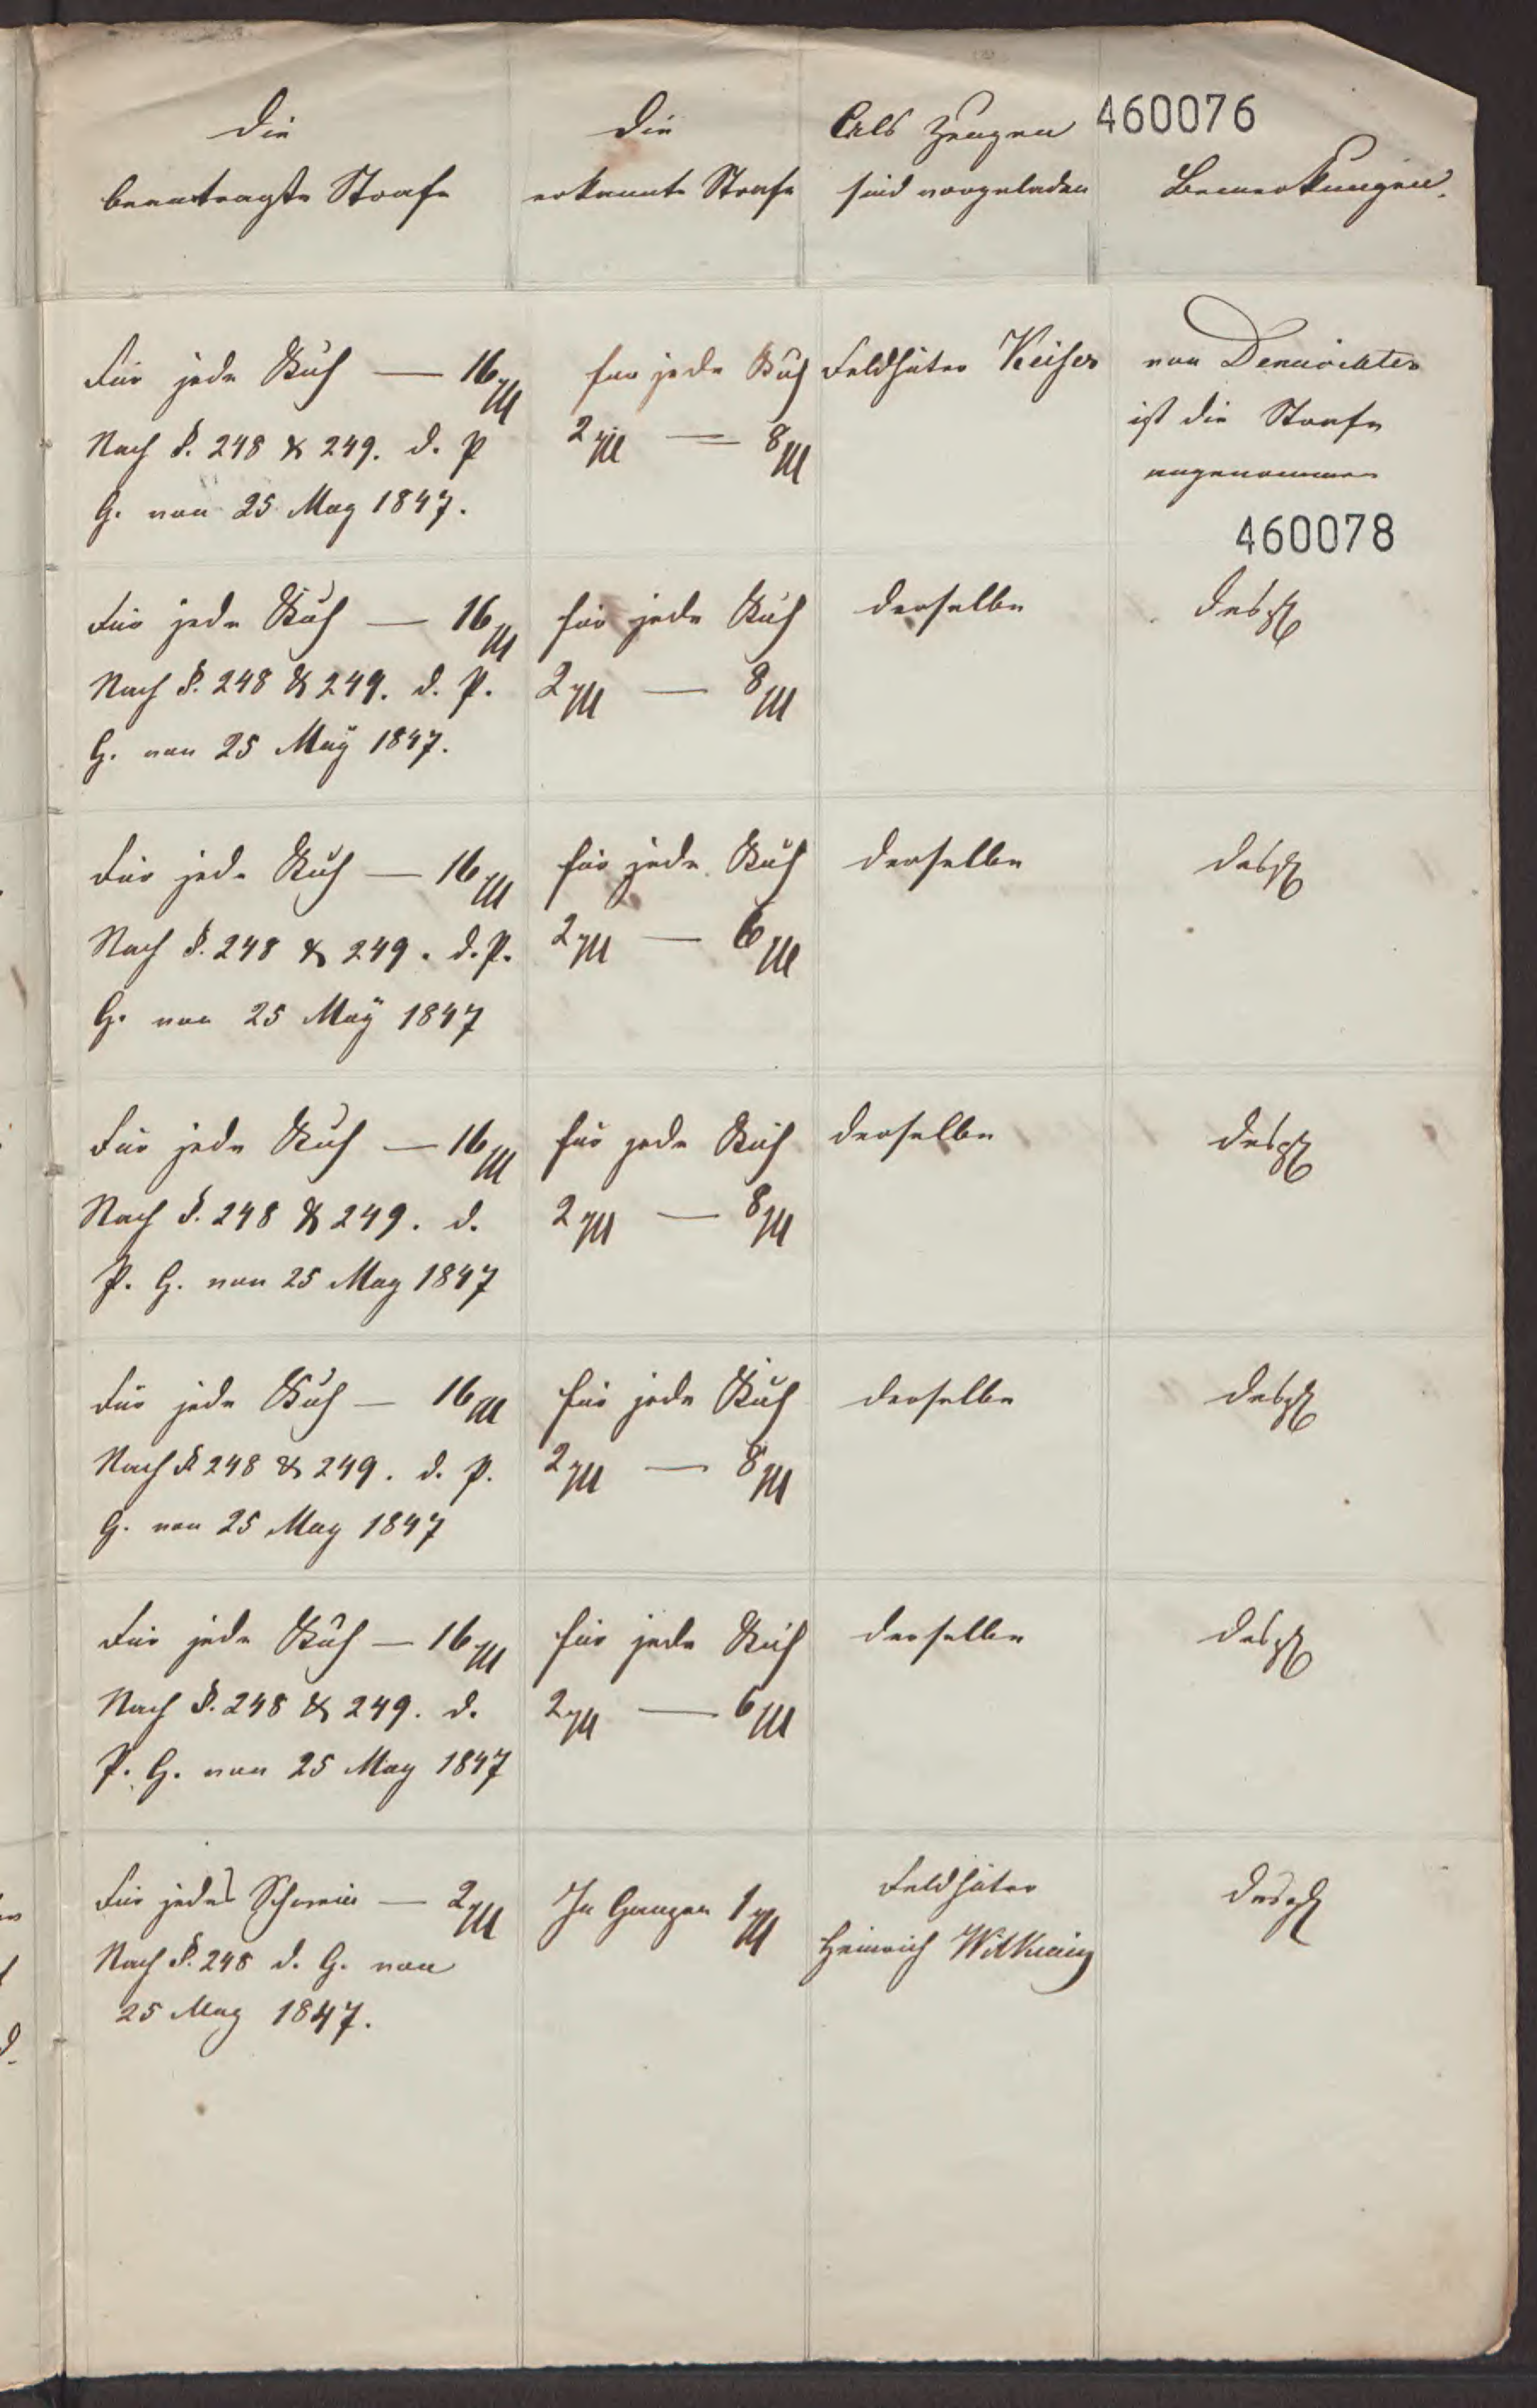 Die
beantragte Strafe
Die
erkannte Strafe
Als Zeugen
sind vorgeladen
460076
Bemerkungen.
Für jede Kuh — 16
Nach §. 248 & 249. d. P
G. von 25 May 1847.
für jede Kuh
2 — 8
Feldhüter Keiser
von Denuncirten
ist die Strafe
angenommen
460078
Für jede Kuh — 16
Nach §. 248 & 249. d. P.
G. von 25 May 1847.
für jede Kuh
2 — 8
derselbe
desgl
Für jede Kuh — 16
Nach §. 248 & 249. d. P.
G. von 25 May 1847
für jede Kuh
2 — 6
derselbe
desgl
Für jede Kuh — 16
Nach §. 248 & 249. d.
P. G. von 25 May 1847
für jede Kuh
2 — 8
derselbe
desgl
Für jede Kuh — 16
Nach § 248 & 249. d. P.
G. von 25 May 1847
für jede Kuh
2 — 8
derselbe
desgl
Für jede Kuh — 16
Nach §. 248 & 249. d.
P. G. von 25 May 1847
für jede Kuh
2 — 6
derselbe
desgl
Für jedes Schwein — 2
Nach §. 248 d. G. von
25 May 1847.
Im Ganzen 1
Feldhüter
Heinrich
desgl